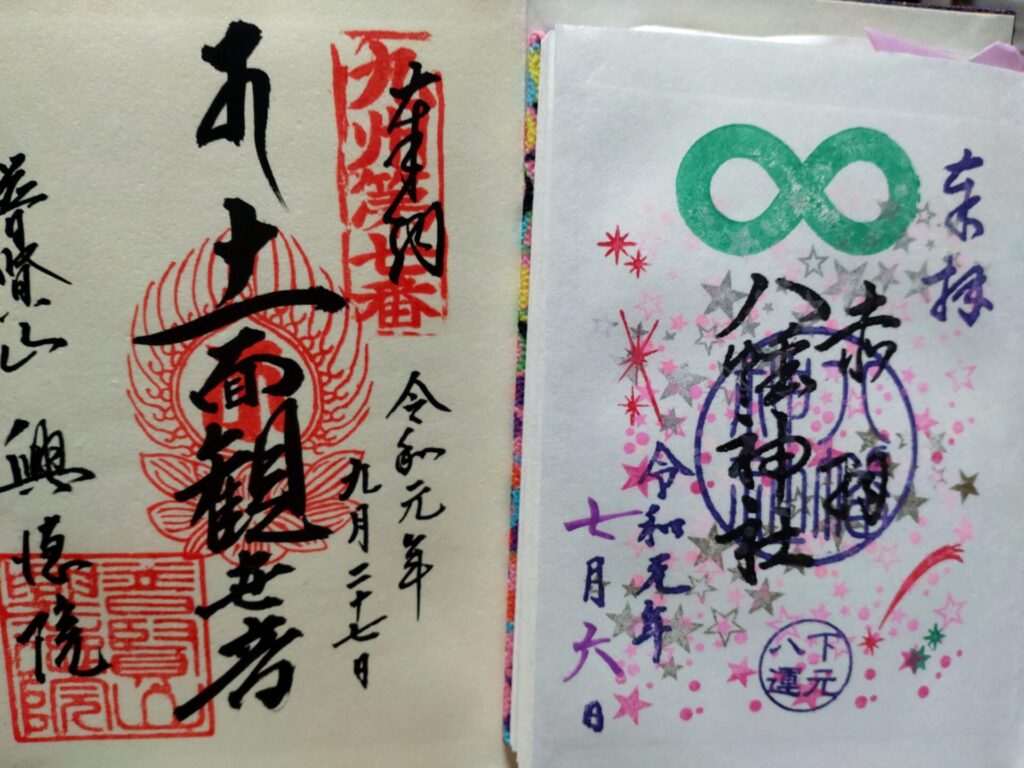 九州第七番
奉納
十一面観世音
令和元年
九月二十七日
普賢山 興徳院
奉拝
八幡神社
令和元年
七月六日
下元
八運